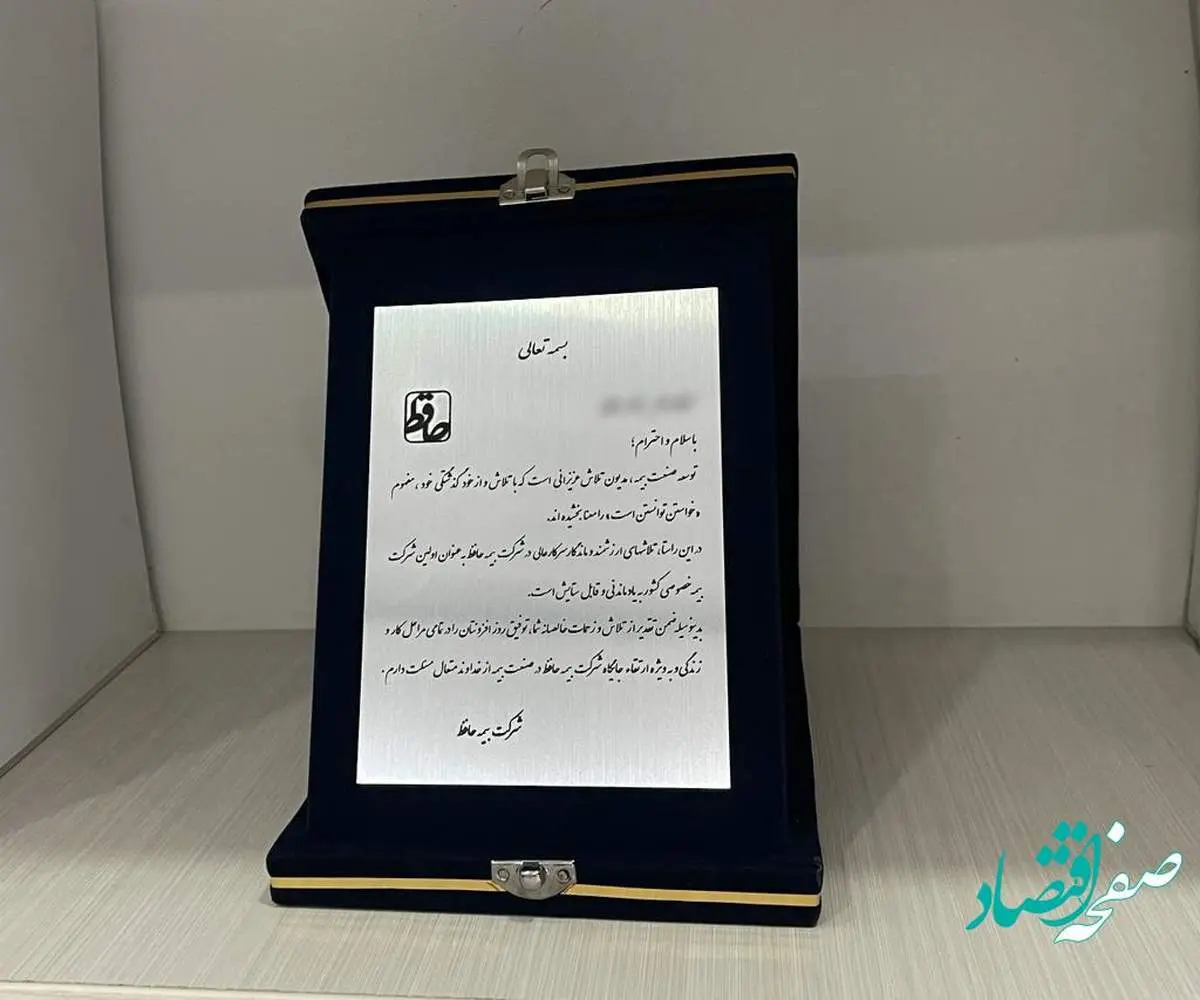 بسمه تعالی
حافظ
باسلام و احترام؛
توسعه صنعت بیمه، مدیون تلاش عزیزانی است که با تلاش و از خود گذشتگی خود، مفهوم
«خواستن توانستن است» را معنا بخشیده اند.
در این راستا، تلاشهای ارزشمند و ماندگار سرکار عالی در شرکت بیمه حافظ به عنوان اولین شرکت
بیمه خصوصی کشور به یاد ماندنی و قابل ستایش است.
بدینوسیله ضمن تقدیر از تلاش و زحمات خالصانه شما، توفیق روز افزونتان را در تمامی مراحل کار و
زندگی و به ویژه ارتقاء جایگاه شرکت بیمه حافظ در صنعت بیمه از خداوند متعال مسئلت دارم.
شرکت بیمه حافظ
صفحه اقتصاد